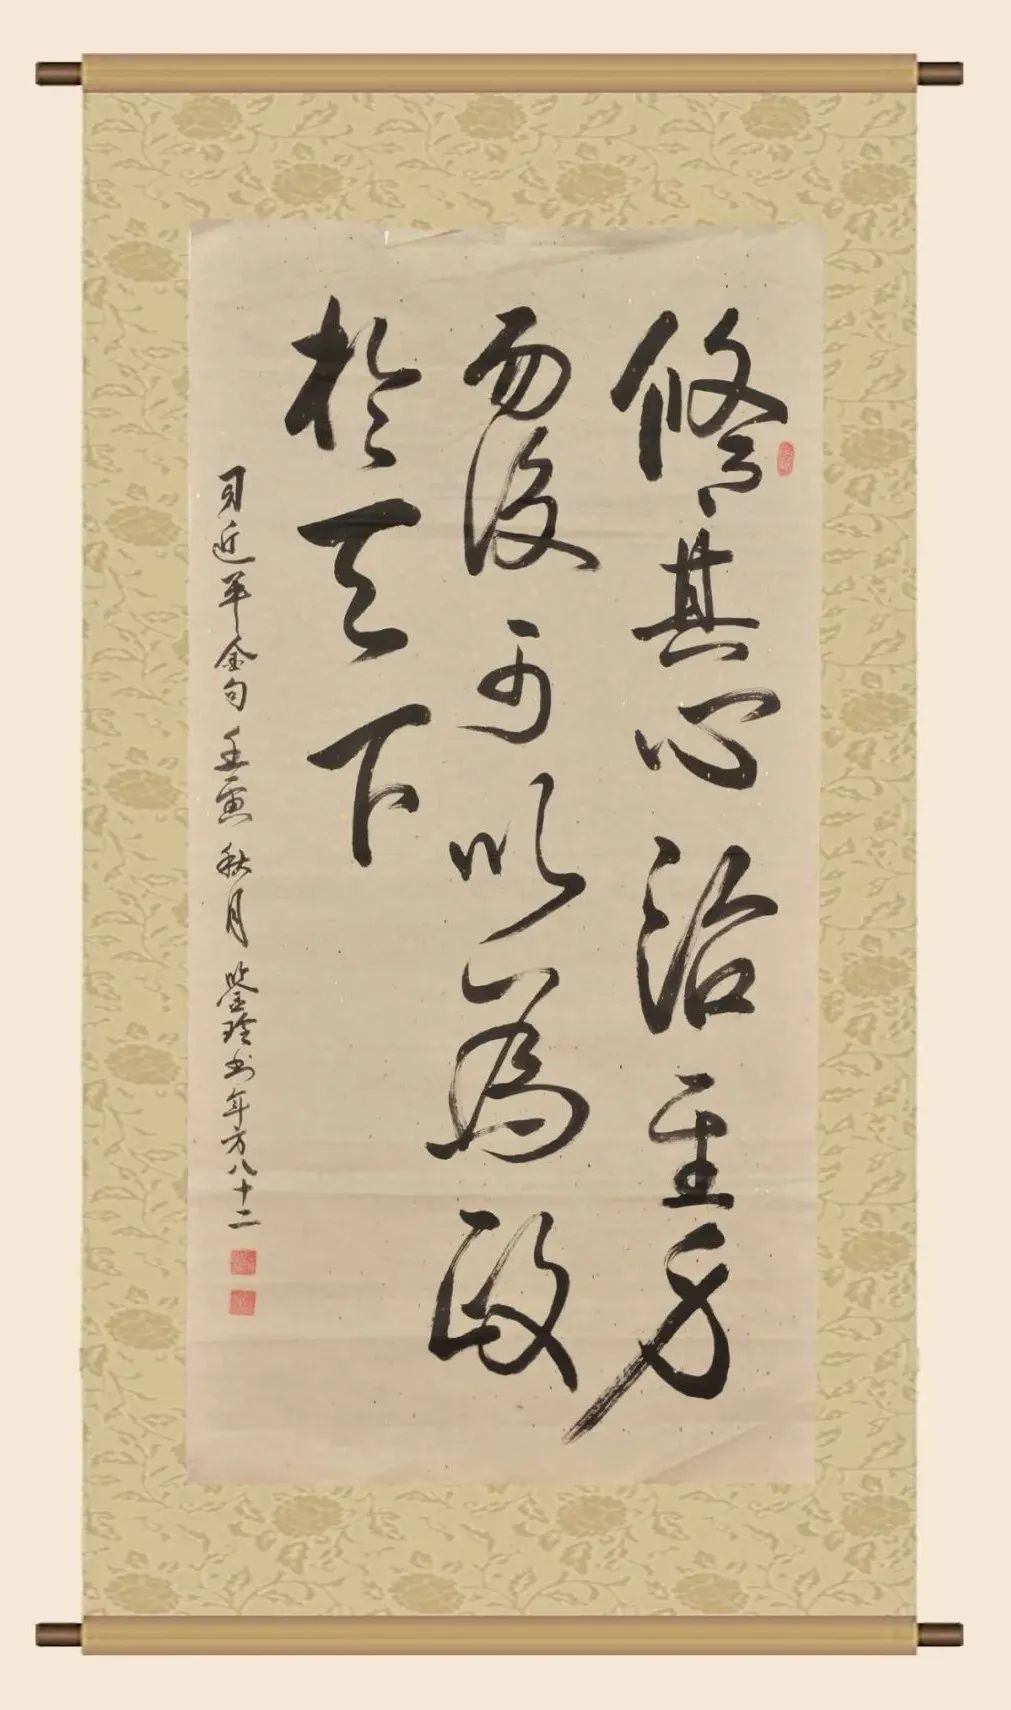 修其心治其身
而後可以為政
於天下
习近平金句 壬寅秋月 鉴玲书年方八十二